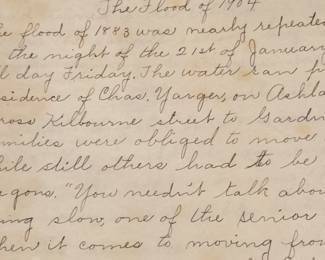 The Flood of 1904
e flood of 1883 was nearly repeated
the night of the 21st of January
l day Friday. The water ran
sidence of Chas. Yarger, on Ashla
ross Kilbourne street to Gardn
amilies were obliged to move
hile still others had to be
gons. "You needn't talk abou
ing slow, one of the senior
hen it comes to moving from